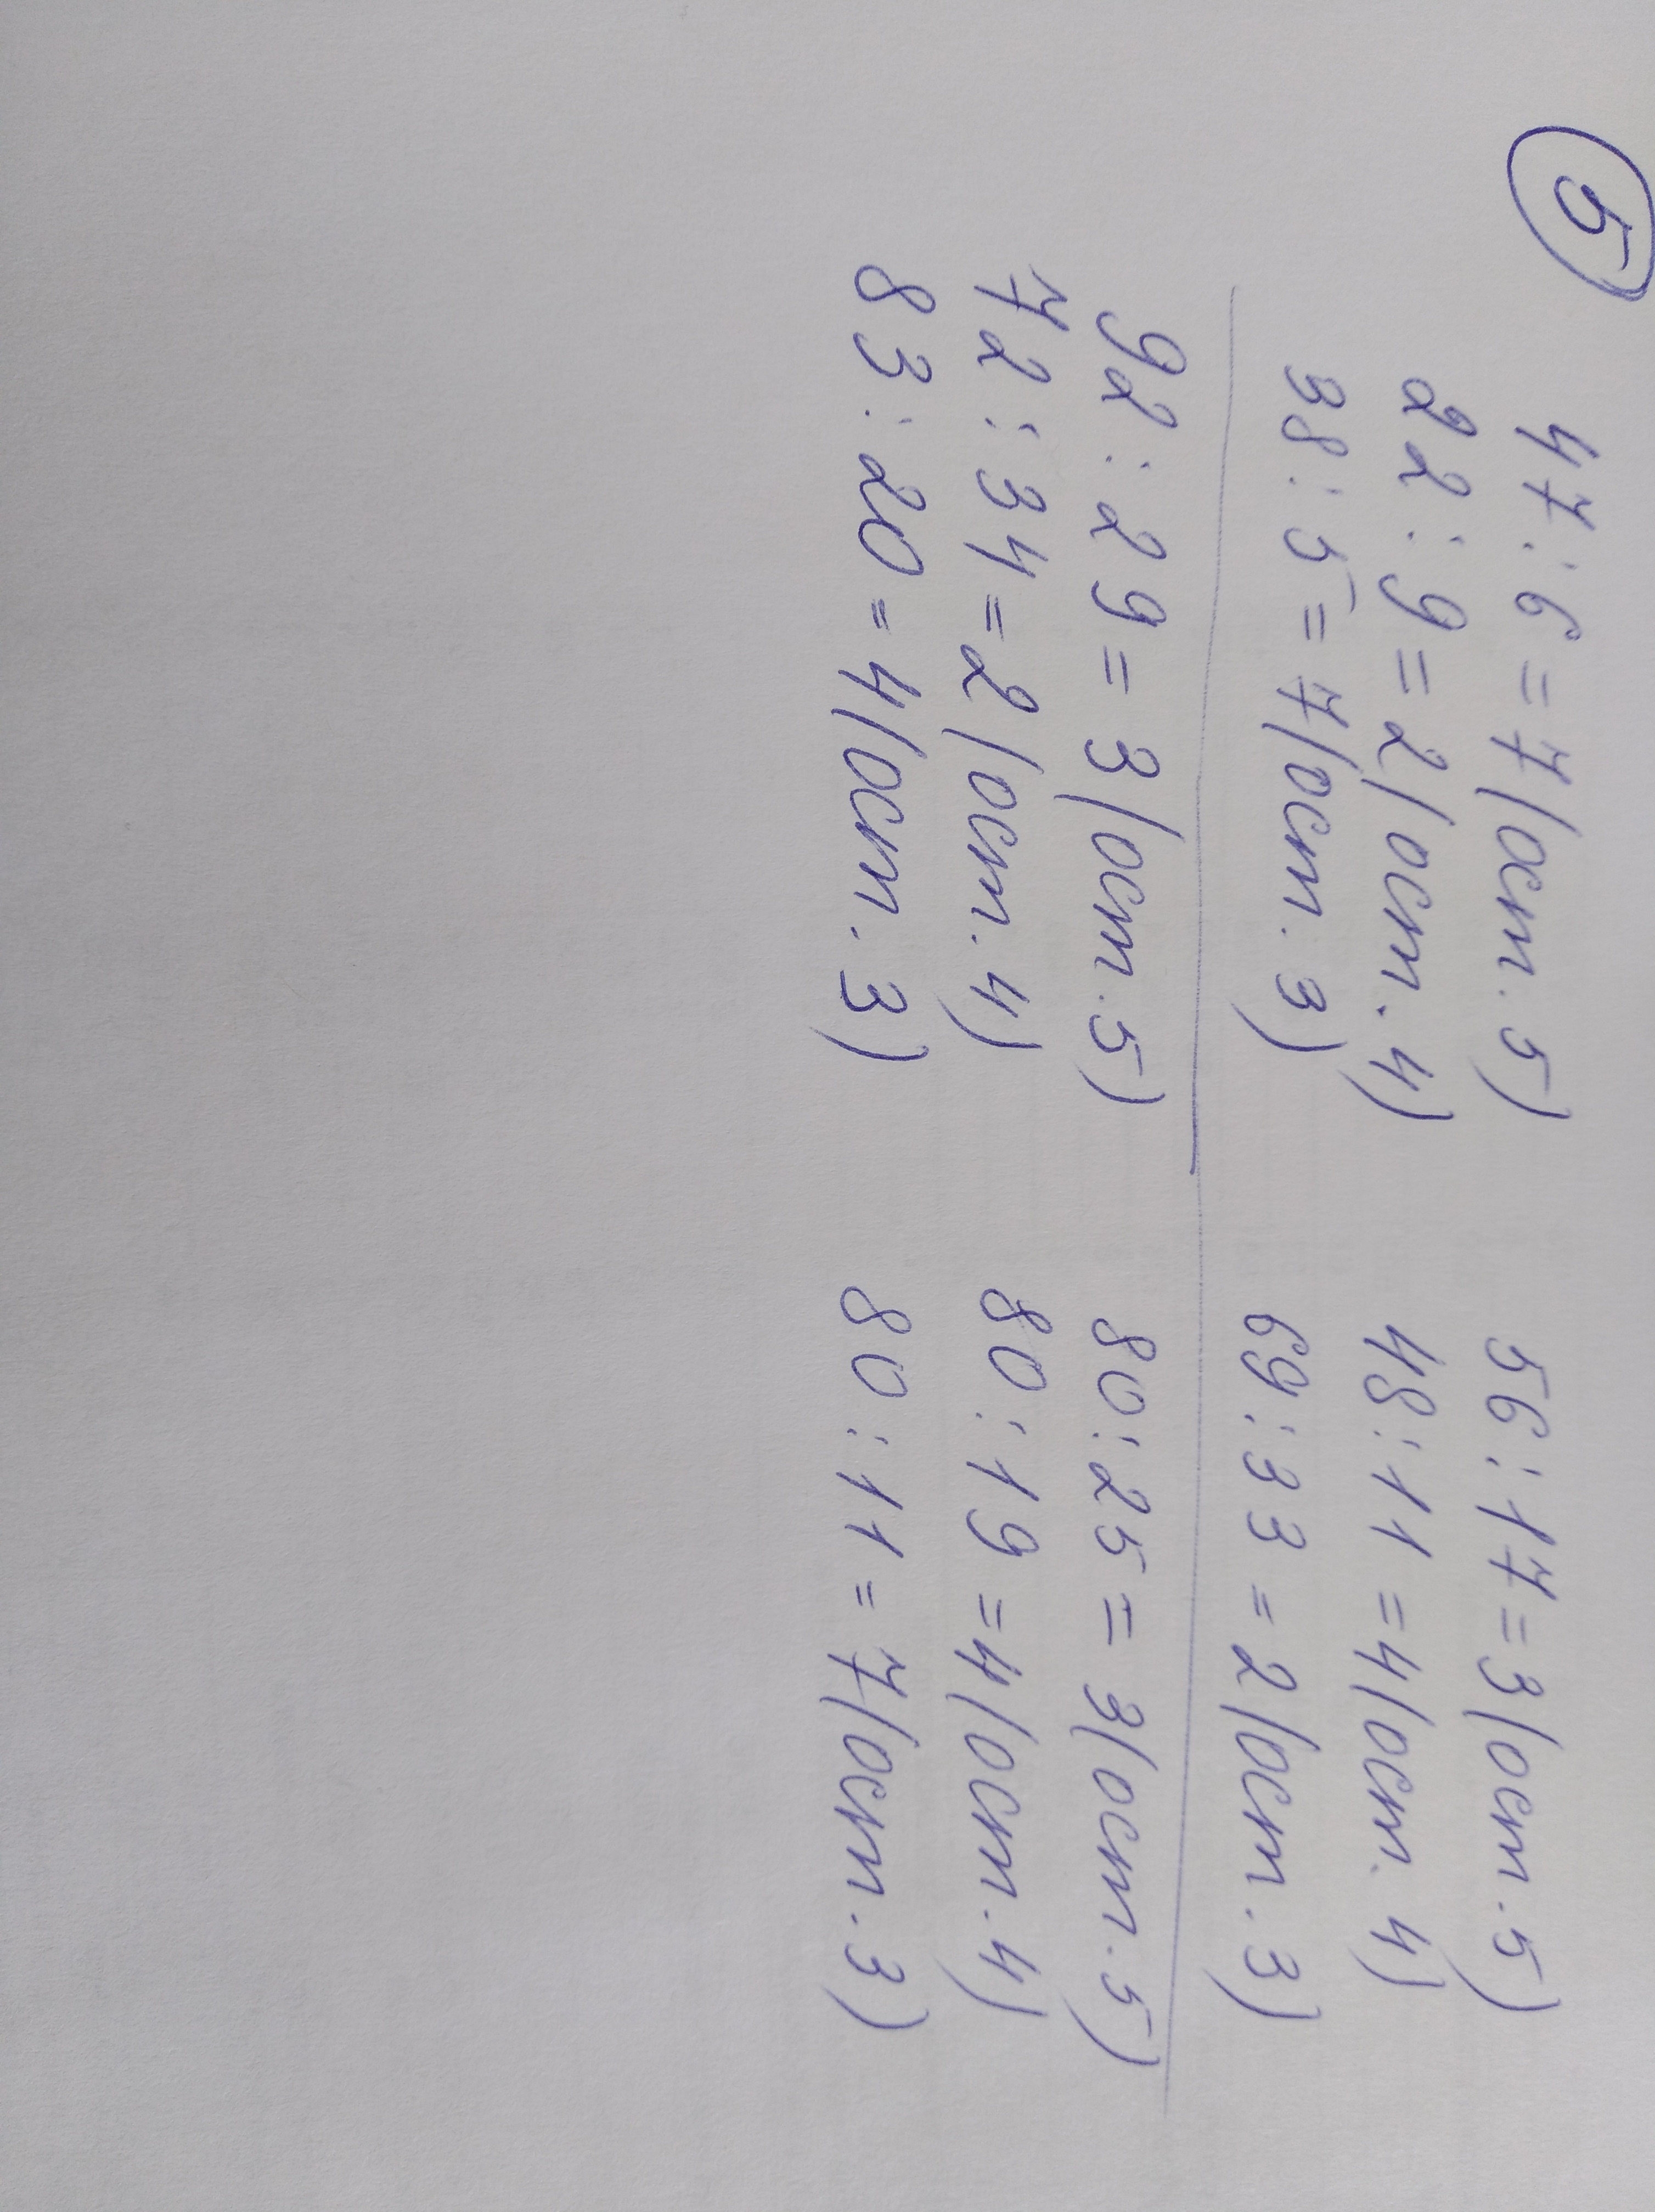 5
47:6=7(ост.5) 56:17=3(ост.5)
22:9=2(ост.4) 48:11=4(ост.4)
38:5=7(ост.3) 69:33=2(ост.3)
92:29=3(ост.5) 80:25=3(ост.5)
72:34=2(ост.4) 80:19=4(ост.4)
83:20=4(ост.3) 80:11=7(ост.3)